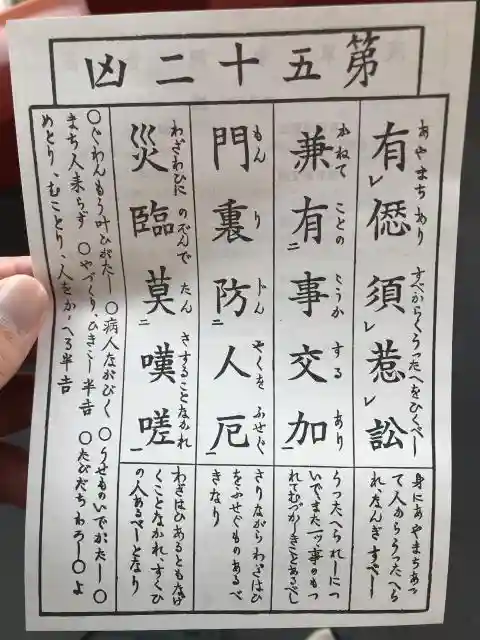 第五十二凶
有僁須惹訟
あやまちあり すべからくうつたへをひくべし
身にあやまちあつ
て人からうつたへら
れ、なんぎすべし
兼有事交加
かねて ことの かうか する あり
うつたへられしにつ
いでまた一ッ事のもつ
れてむづかしきことあるべし
門裏防人厄
もん り 人の やくを ふせぐ
さりながらわざはひ
をふせぐものあるべ
きなり
災臨莫嘆嗟
わざわひに のぞんで たん さすることなかれ
わざはひあるともなげ
くことなかれ、すくひ
の人あるべしとなり
〇ぐわんもう叶ひがたし 〇病人ながびく 〇うせものいでがたし 〇
まち人来らず 〇やづくり、ひきこし半吉 〇たびだちわろし 〇よ
めとり、むことり、人をかゝへる半吉